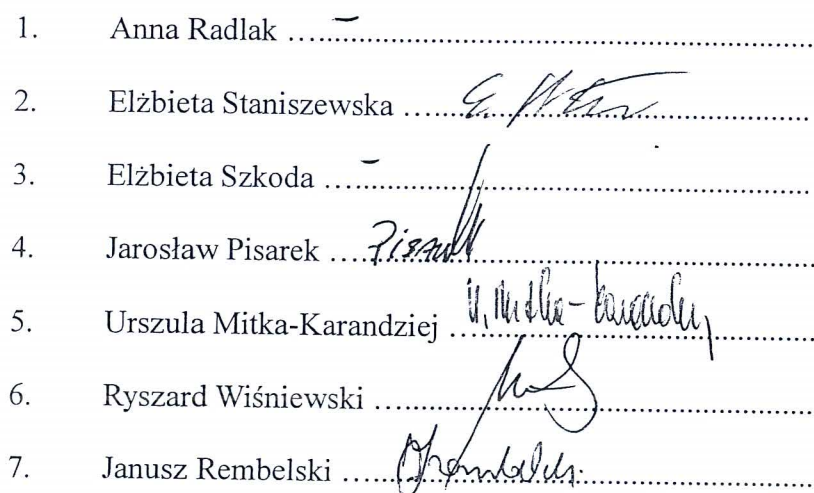 1. Anna Radlak ........ –
2. Elżbieta Staniszewska ........
3. Elżbieta Szkoda ........ –
4. Jarosław Pisarek ........ Pisarek
5. Urszula Mitka-Karandziej ........ U. Mitka-Karandziej
6. Ryszard Wiśniewski ........
7. Janusz Rembelski ........ JRembelski